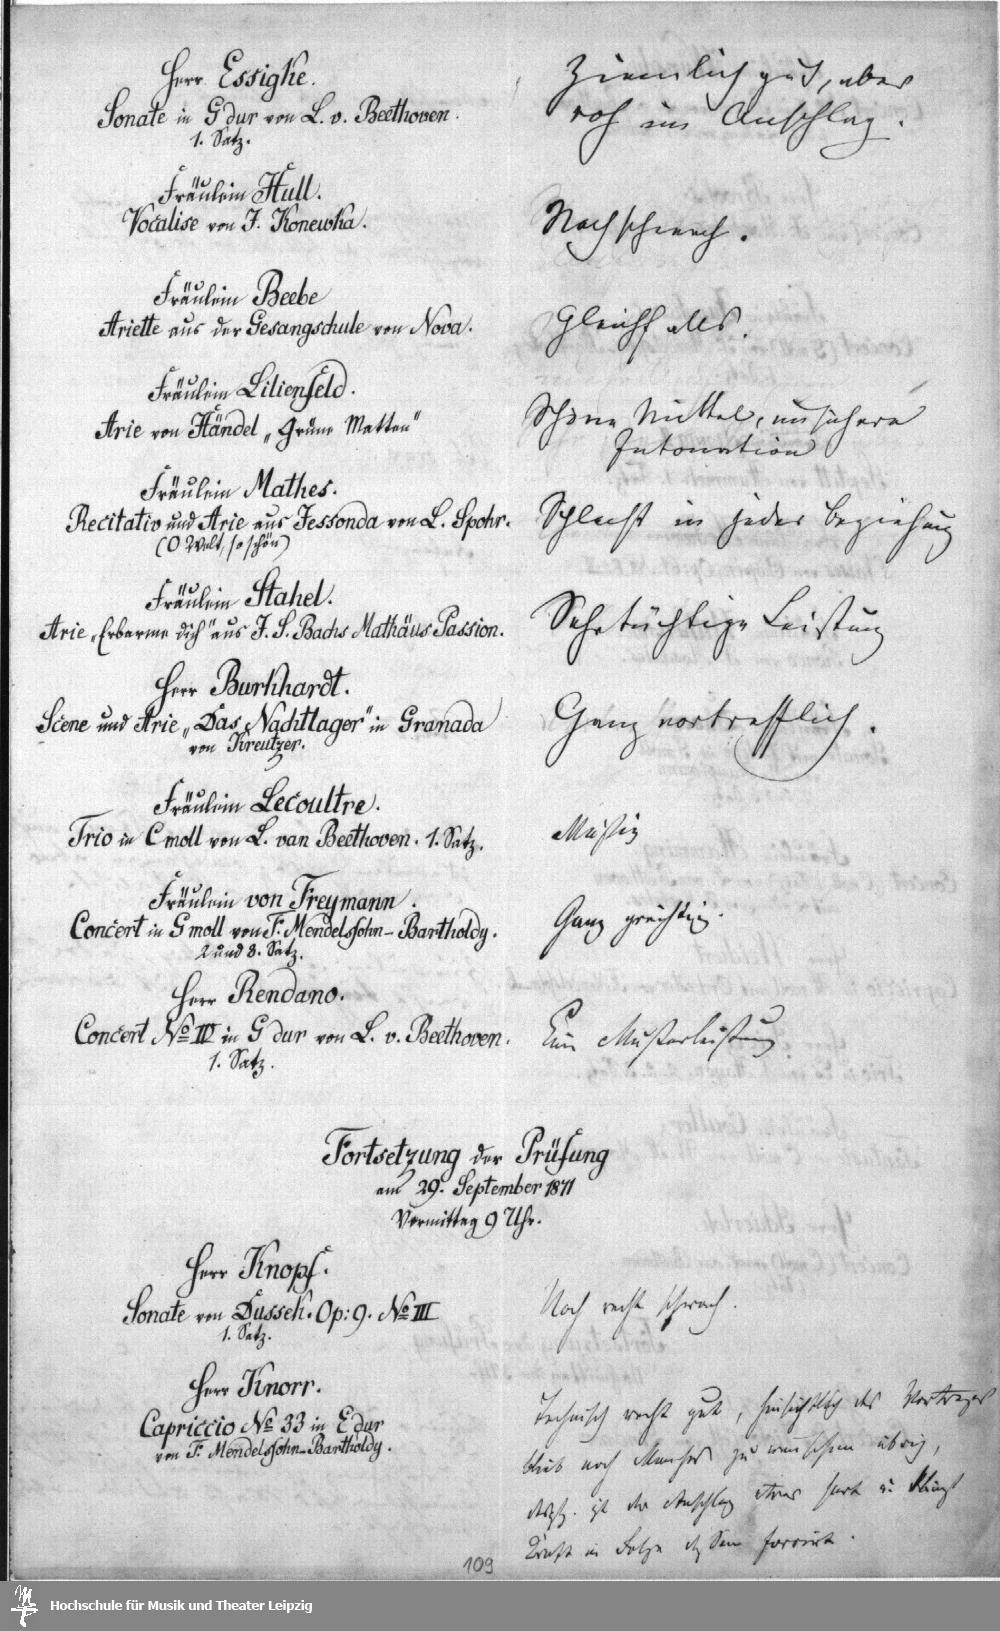 Herr Essigke.
Ziemlich gut, aber
Sonate in G dur von L. v. Beethoven.
roh im Anschlag.
1. Satz.
Fräulein Hull.
Vocalise von J. Konewka.
Noch schwach.
Fräulein Beebe
Ariette aus der Gesangschule von Nova.
Gleichfalls.
Fräulein Lilienfeld.
Arie von Händel „Grüne Matten"
Schöne Mittel, unsichere
Intonation
Fräulein Mathes.
Recitativ und Arie aus Jessonda von L. Spohr.
(O Welt, so schön)
Schlecht in jeder Beziehung
Fräulein Stahel.
Arie „Erbarme dich" aus J. S. Bachs Mathäus Passion.
Sehr tüchtige Leistung
Herr Burkhardt.
Scene und Arie „Das Nachtlager" in Granada
von Kreutzer.
Ganz vortrefflich.
Fräulein Lecoultre.
Trio in C moll von L. van Beethoven. 1. Satz.
Mäßig
Fräulein von Freymann.
Concert in G moll von F. Mendelssohn-Bartholdy.
2 und 3. Satz.
Ganz
Herr Rendano.
Concert No IV in G dur von L. v. Beethoven.
1. Satz.
Eine Musterleistung
Fortsetzung der Prüfung
am 29. September 1871
Vormittag 9 Uhr.
Herr Knopf.
Sonate von Dussek. Op: 9. No III
1. Satz.
Noch recht schwach.
Herr Knorr.
Capriccio No 33 in E dur
von F. Mendelssohn-Bartholdy.
Technisch recht gut, hinsichtlich des Vortrages
blieb noch Manches zu wünschen übrig,
ist der Anschlag etwas hart u. klingt
in Folge dessen forcirt.
109
Hochschule für Musik und Theater Leipzig